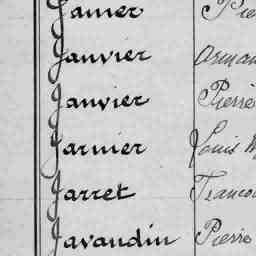 Janier Pie
Janvier Arman
Janvier Pierre
Jarnier Louis
Jarret Francoi
Javaudin Pierre